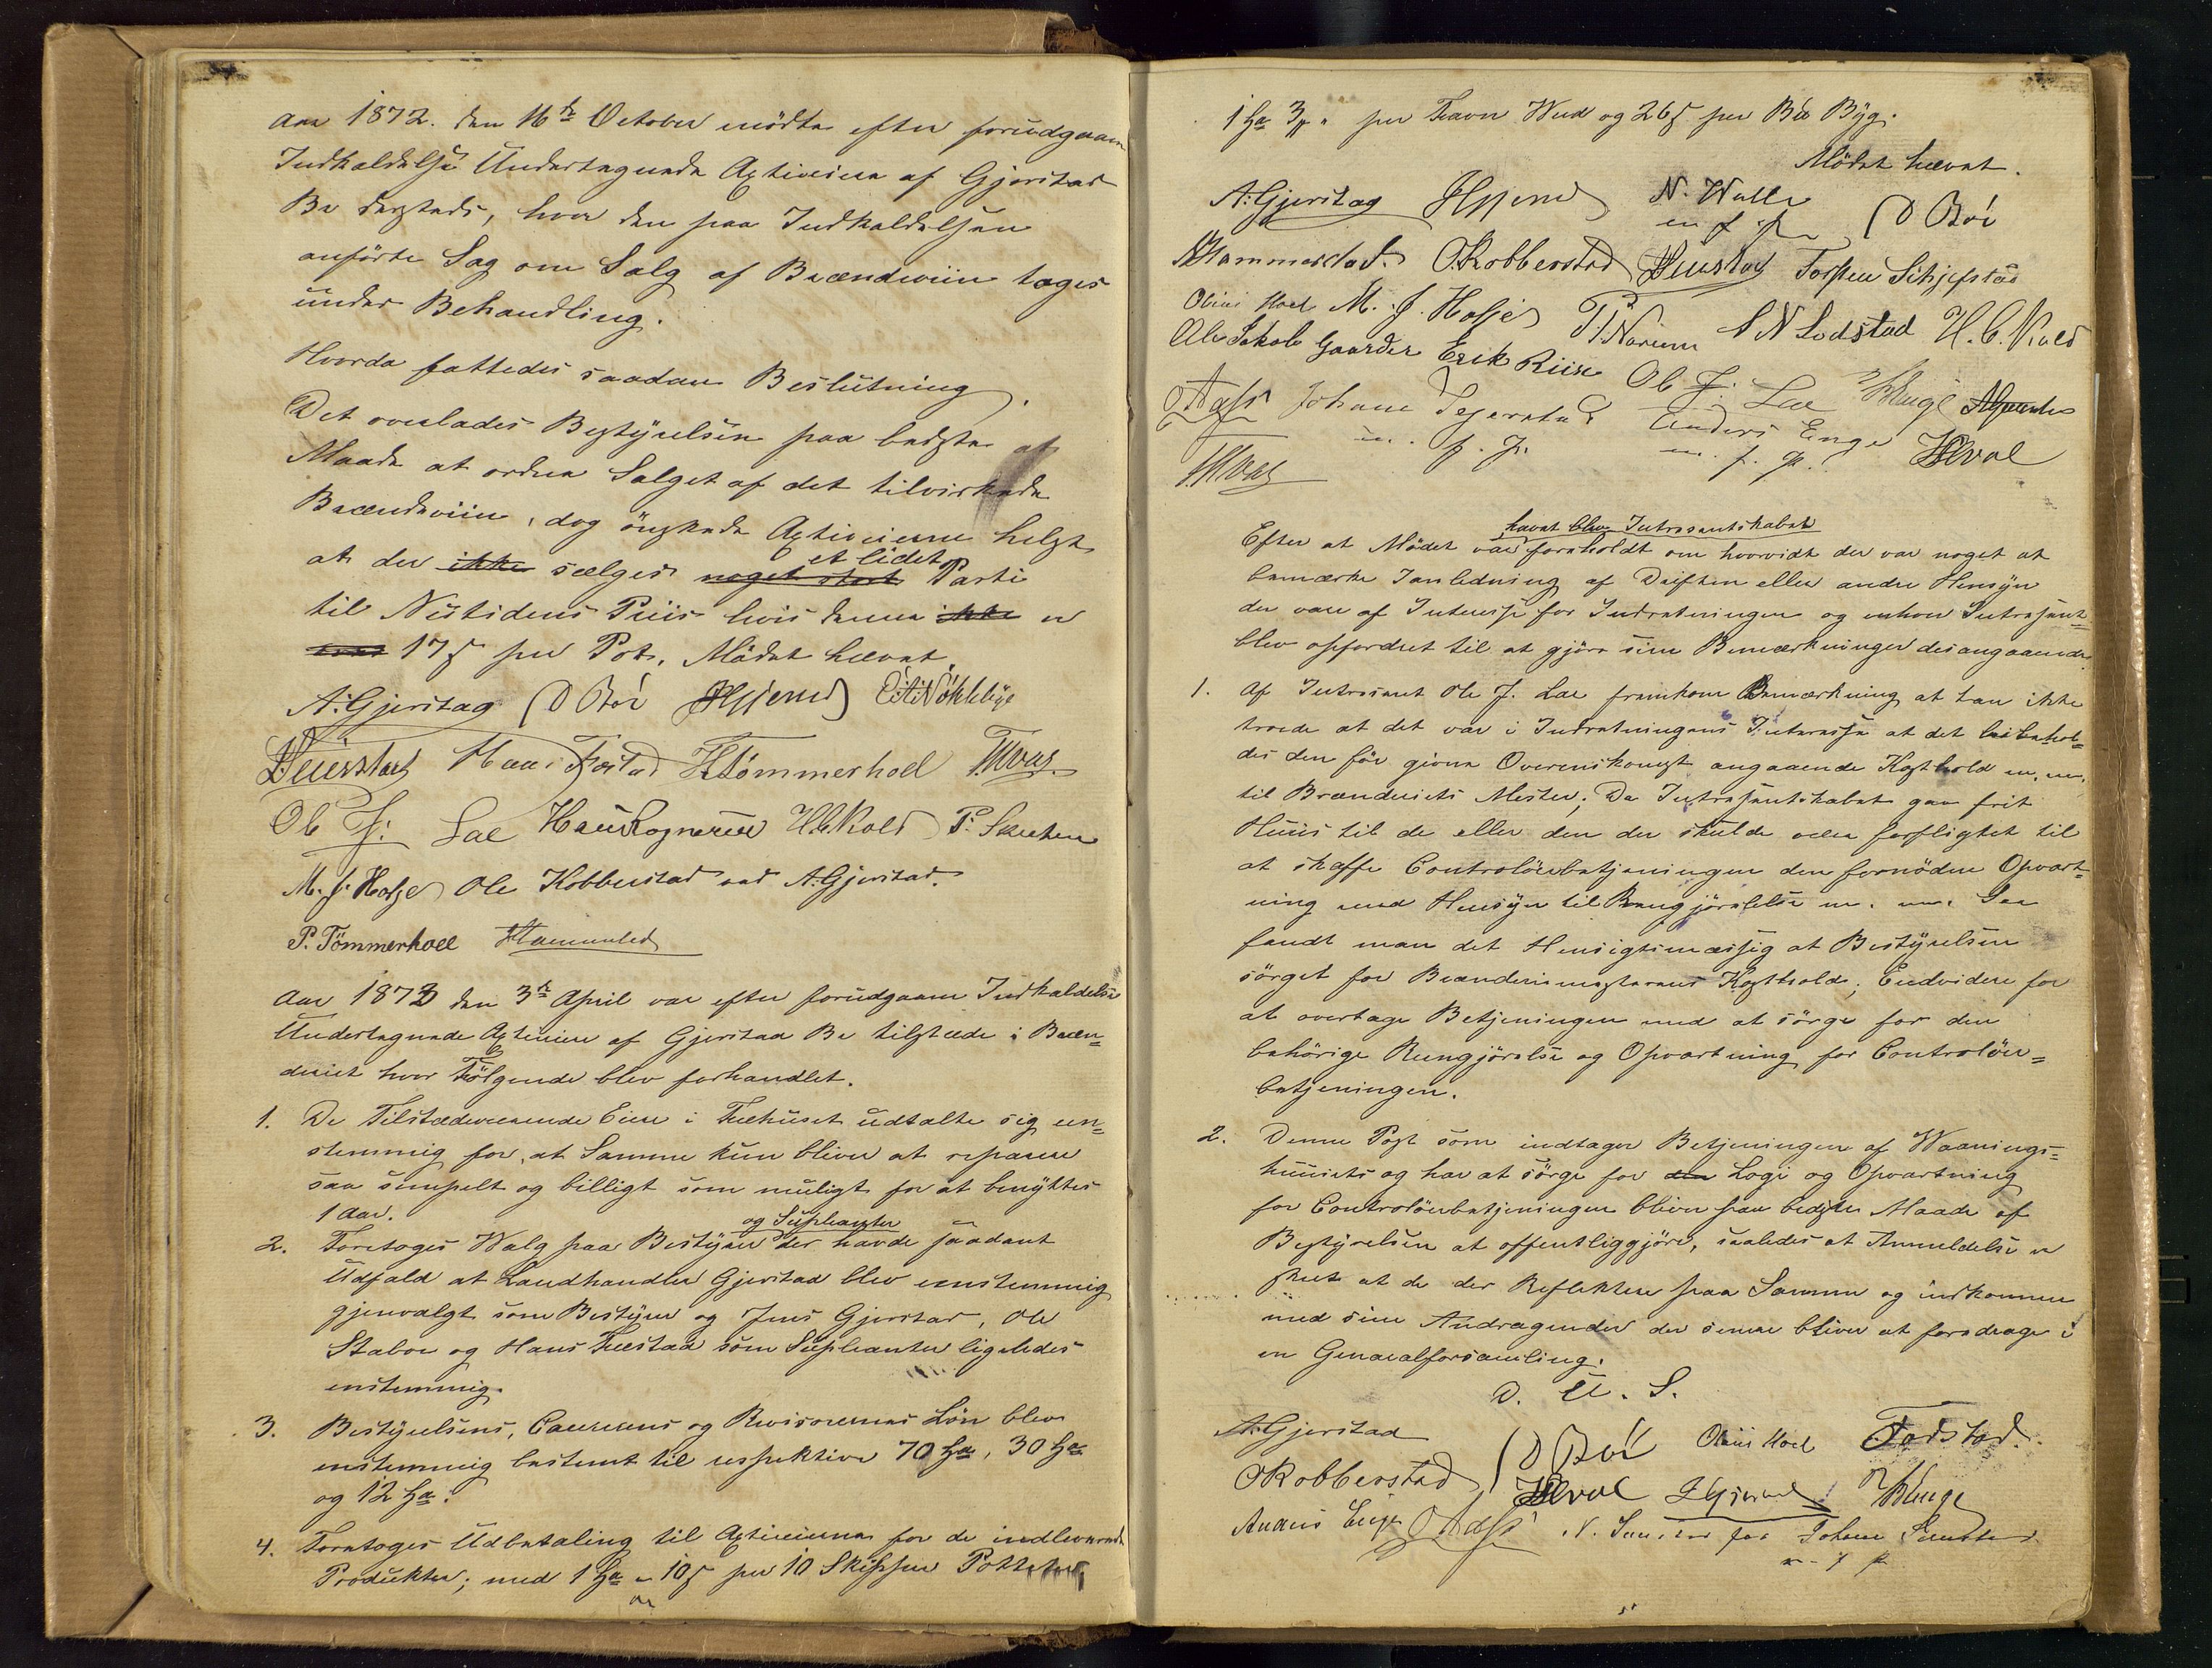 Aar 1872. den 16de October mödte efter forudgaaen
Indkaldelse Undertegnede Axtieiere af Gjerstad
Br dersteds, hvor den paa Indkaldelsen
anförte Sag om Salg af Brændeviin toges
under Behandling.
Hvorda fattedes saadan Beslutning
Det overlades Bestyrelsen paa bedste
Maade at ordne Salget af det tilvirkede
Brændeviin, dog önskede Axtieierne helst
et lidet
at der ikke sælges noget stort Parti
til Nutidens Priis hvis denne ikke er
17 ß per Pot. Mödet hævet.
A. Gjerstad O Böe E. A. Nöklebye
Hans H Tömmerhoel
Ole J. Lae Hans Rognerud H C Kold P.
M. J. Holje Ole Kobberstad ved A. Gjerstad.
P. Tömmerhoel
Aar 1873 den 3de April var efter forudgaaen Indkaldelse
Undertegnede Axtieiere af Gjerstad Br tilstæde i Bræn=
deriet hvor Fölgende blev forhandlet.
1. De Tilstædeværende Eiere i Fæhuset udtalte sig een=
stemmig for, at Samme kun bliver at reparere
saa simpelt og billigt som muligt for at benyttes
1 Aar.
og Supleanter
2. Foretoges Valg paa Bestyrer der havde saadant
Udfald at Landhandler Gjerstad blev eenstemmig
gjenvalgt som Bestyrer og Jens Gjerstad, Ole
Staboe og Hans som Supleanter ligeledes
enstemmig.
3. Bestyrelsens, Casserens og Revisorernes Lön blev
enstemmig bestemt til respektive 70 , 30
og 12 .
4. Foretoges Udbetaling til Axtieierne for de indleverede
Produkter; med 1 10 ß per 10 Skipper
1 3 per Favn Ved og 26 ß per Byg.
Mödet hævet.
A. Gjerstad N. Walle O Böe
m f p
Hammerstad O. Kobberstad Torsten
Olius Hoel M. J. Holje P. Narum N Lodstad H. C. Kold
Ole Jakob Gaarder Erik Riise Ole J. Lae
Johane Anders Enge
m. f. p. m. f. p.
hævet blev Interesentskabet
Efter at Mödet var foreholdt om hvorvidt der var noget at
bemærke Ianledning af Driften eller andre Hensyn
der vare af Interesse for Indretningen og enhver Intressent
blev opfordret til at gjöre sine Bemærkninger desangaaende.
1. Af Intresent Ole J. Lae fremkom Bemærkning at han ikke
troede at det var i Indretningens Interesse at det beibehol=
des den för givne Overenskomst angaaende Kosthold m. m.
til Brænderiets Mester; Da Intressentskabet gav frit
Huus til de eller den der skulde være forpligtet til
at skaffe Controlörbetjeningen den fornödne Opvart=
ning med Hensyn til Rengjörelse m. m. Saa
fandt man det Hensigtsmæssig at Bestyrelsen
sörget for Brænderimesterens Kosthold; Endvidere for
at overtage Betjeningen med at sörge for den
behörige Rengjörelse og Opvartning for Controlör=
betjeningen.
2. Denne Post som indtager Betjeningen af Waanings=
huusets og har at sörge for den Logi og Opvartning
for Controlörbetjeningen bliver paa bedste Maade af
Bestyrelsen at offentliggjöre, saaledes at Anmeldelse er
skeet at de der Reflektere paa Samme og indkommer
med sine Andragender der senere bliver at foredrage i
en Generalforsamling.
D. U. S.
A. Gjerstad O Böe Olius Hoel Fodstad
O Kobberstad
Anders Enge N. for Johane
m. f. p.